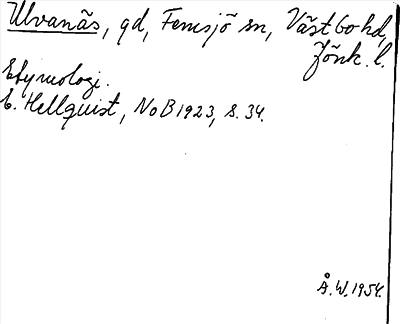 Ulvanäs, gd, Femsjö sn, Västbo hd,
Jönk. l.
Etymologi.
E. Hellquist, NoB 1923, s. 34.
Å.W. 1954.